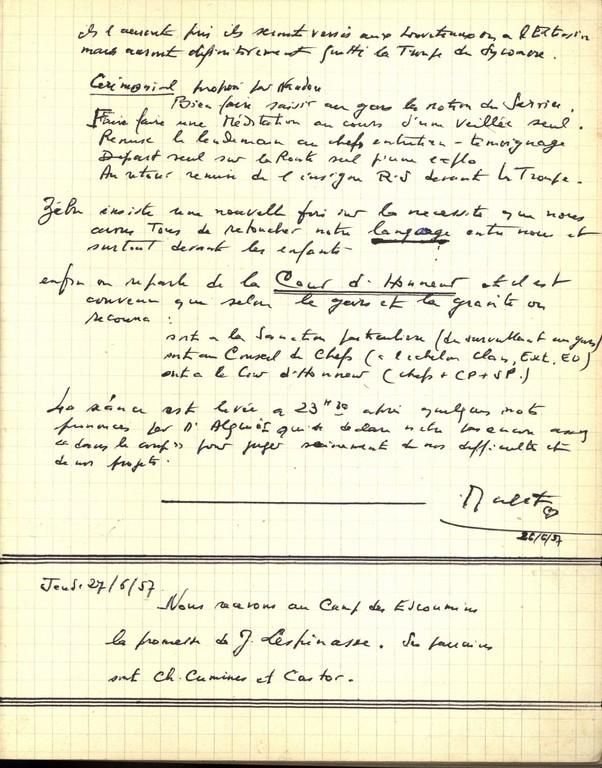 ils seront versés aux Louveteaux ou a l'Extension
mais auront définitivement quitté la Troupe du Sycomore.
Cérémonial proposé par
Bien faire saisir au gars la notion du Service.
Faire faire une Méditation au cours d'une veillée seul.
Remise le lendemain au chefs entretien - témoignage
Départ seul sur la Route seul p'une explo
Au retour remise de l'insigne R-S devant la Troupe.
Zébu insiste une nouvelle fois sur la necessité que nous
avons Tous de retoucher notre language entre nous et
surtout devant les enfants -
enfin on reparle de la Cour d'Honneur et il est
convenu que selon le gars et la gravité on
recourra :
soit a la Sanction particulière (du surveillant au gars)
soit au Conseil de Chefs (a l'echelon Clan, Ext, EU)
soit a la Cour d'Honneur (chefs + CP + SP.)
La séance est levée a 23 H 30 après quelques mots
prononcés par Mr qui se déclare
"dans le coup" pour juger sainement de nos difficultés et
de nos projets.
26/6/57
Jeudi 27/6/57
Nous recevons au Camp des Escoumins
la promesse de J. Lespinasse. Ses parrains
sont Ch. Cumines et Castor.